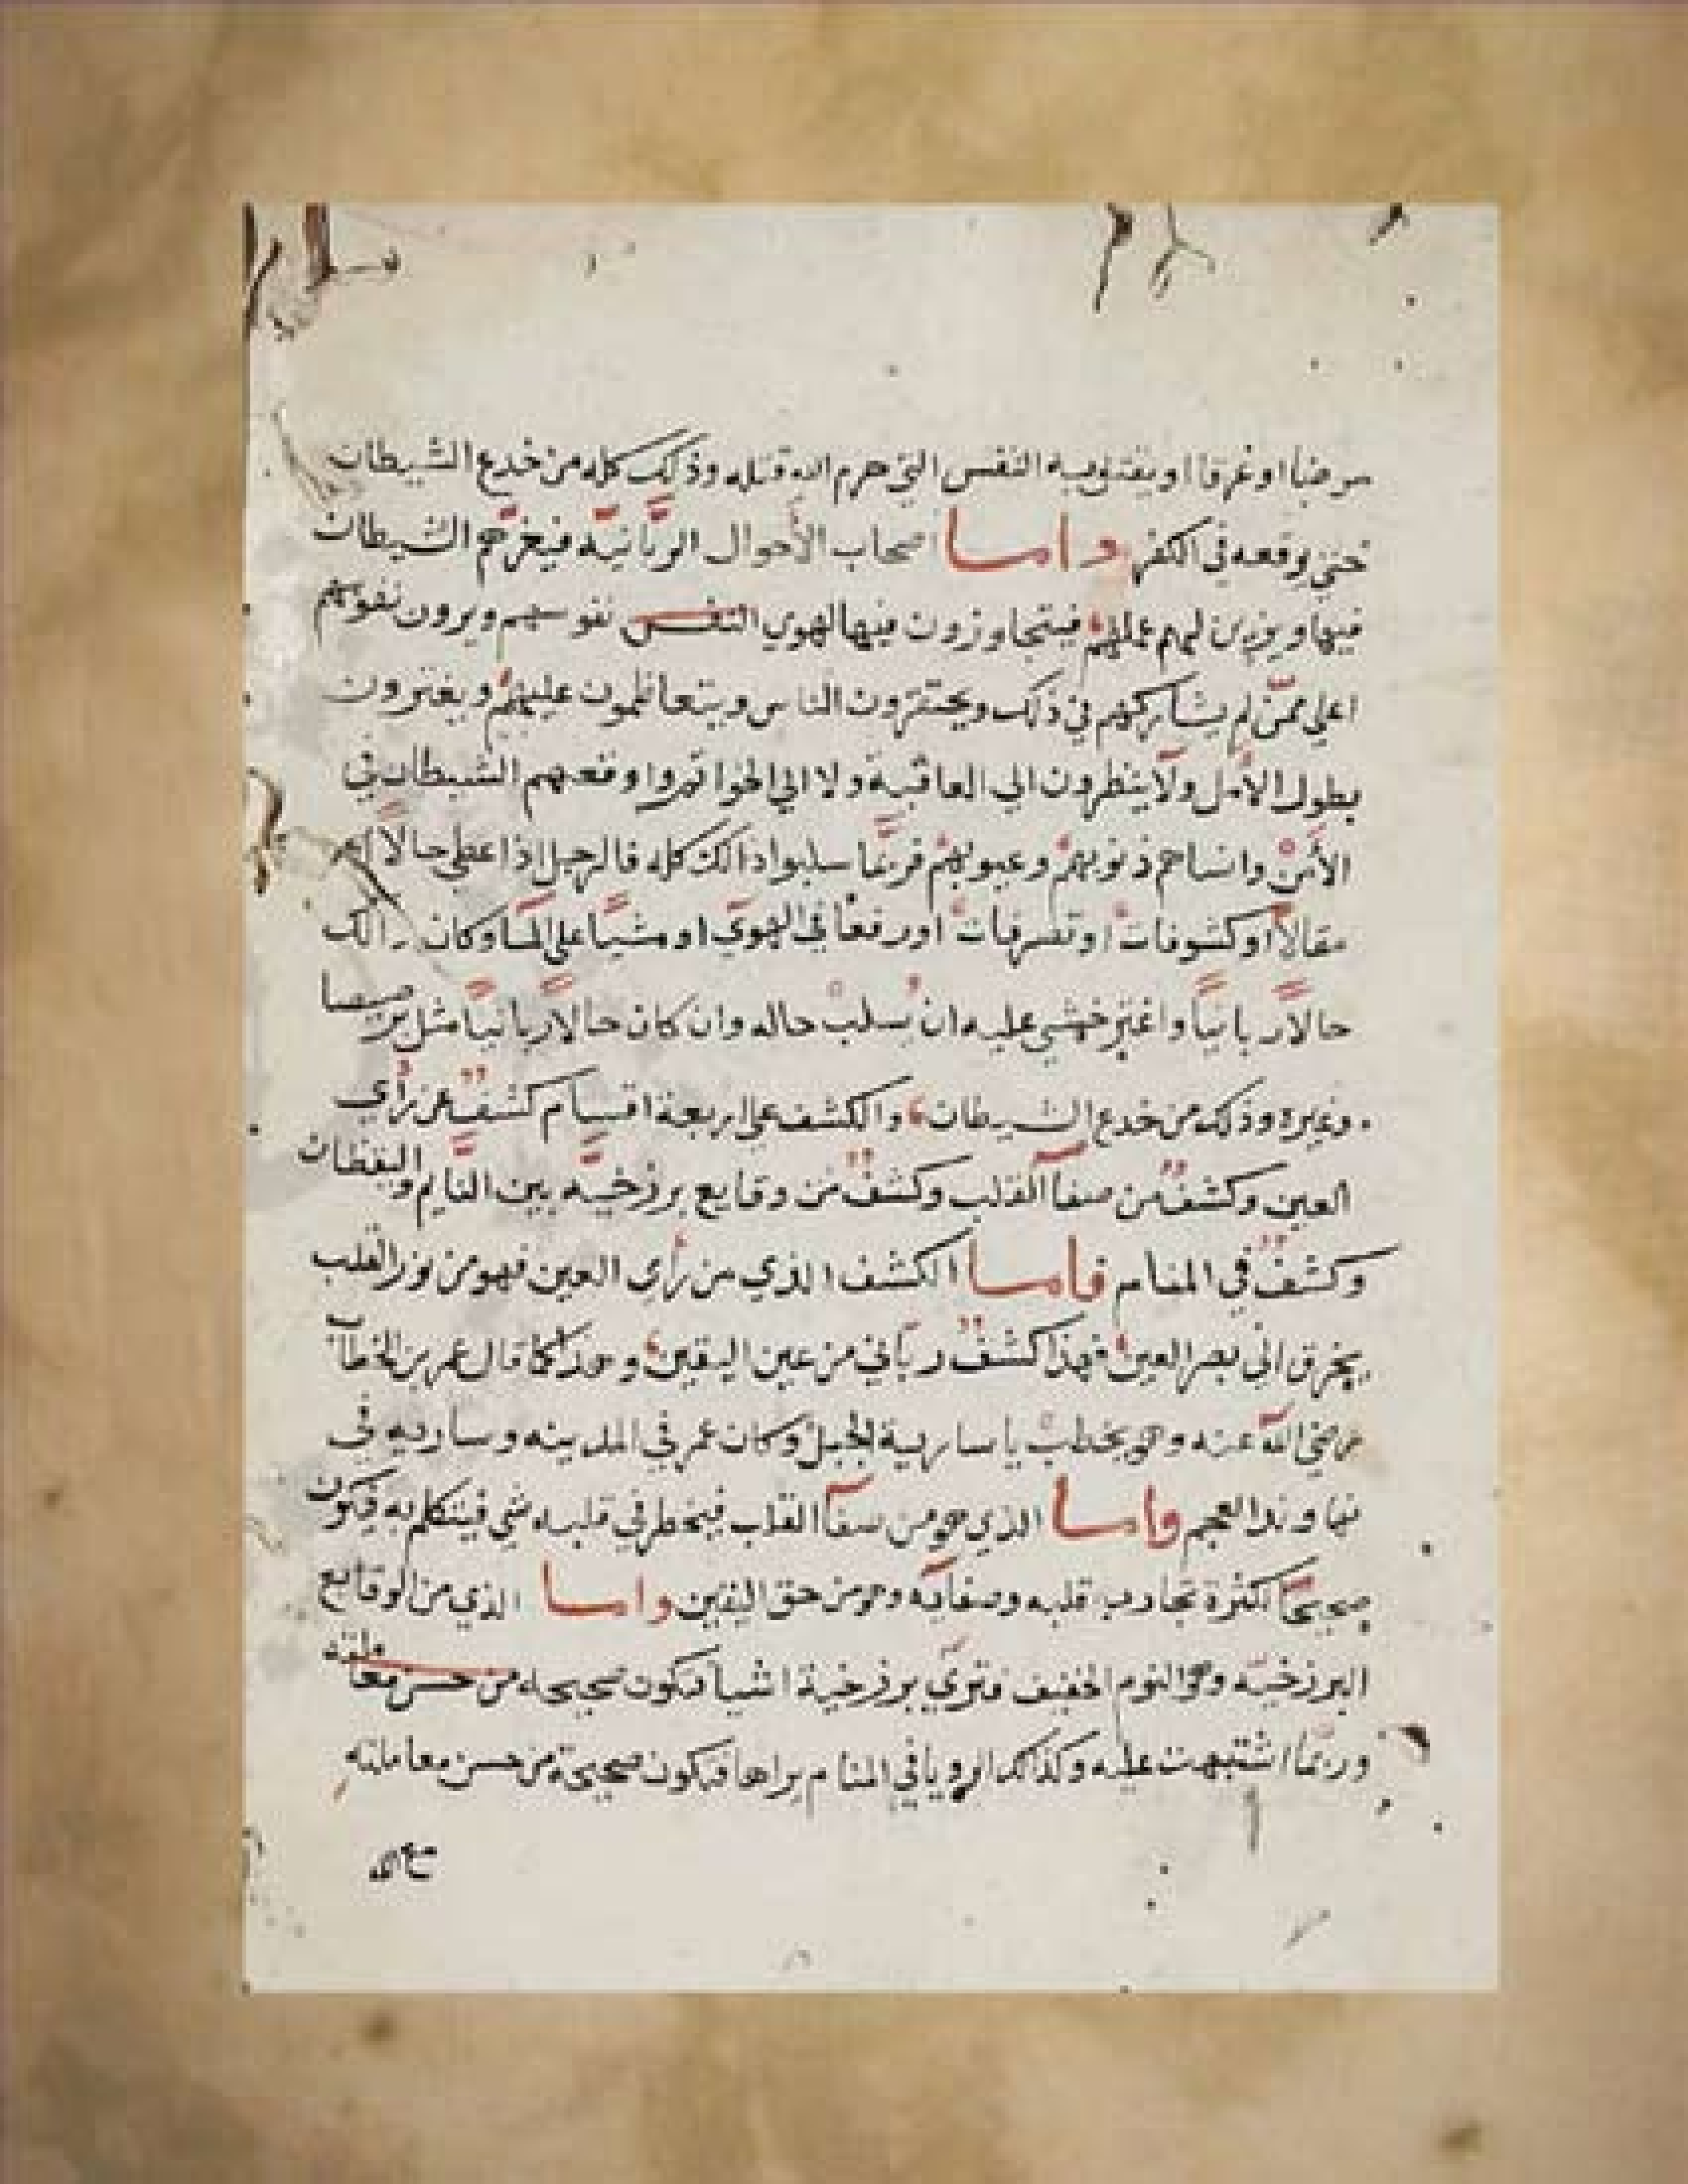 مرضا او غرقا او يفتلوبه النفس التي حرم الله قتله وذلك كله من خدع الشيطان
حتي يوقعه في الكفر واما اصحاب الأحوال الربّانيّه فيغرّهم الشيطان
فيها ويزين لهم عملهم فيتجاوزون فيها لهوي النفس نفوسهم ويرون نفوسهم
اعلي ممّن لم يشاركهم في ذلك ويحتقرون الناس ويتعاظمون عليهم ويغترون
بطول الأمل ولا ينظرون الي العاقبة ولا الي الخواتم واوقعهم الشيطان في
الأمن وانساهم ذنوبهم وعيوبهم فربّما سلبوا ذالك كله فالرجل اذا عطي حالاً
مقالاً او كشوفات او تصرفات او رفعا في الهوي او مشياً علي المآ وكان ذالك
حالاً ربانياً واغتر خشي عليه ان يسلب حاله وان كان حالاً ربانياً مثل برصيصا
وغيره وذلك من خدع الشيطان والكشف علي اربعة اقسام كشفٌ عن رأي
العين وكشفٌ من صفآ القلب وكشفٌ من وقايع برزخيّه بين النّايم واليقظان
وكشفٌ في المنام فاما الكشف الذي من رأي العين فهو من نور القلب
يخرق الي بصر العين فهذا كشفٌ ربّاني من عين اليقين وهو كما قال عمر بن الخطاب
رضي الله عنه وهو يخطب يا سارية الجبل وكان عمر في المدينه وساريه في
نهاوند العجم واما الذي هو من صفآ القلب فيخطر في قلبه شي فيتكلم به فيكون
صحيحًا لكثرة تجارب قلبه وصفآيه وهو من حق اليقين واما الذي من الوقايع
البرزخيّه وهو النوم الخفيف فتري برزخية اشيآ فتكون صحيحه من حسن معاملته
وربّما اشتبهت عليه وكذالك الرويا في المنام يراها فتكون صحيحة من حسن معاملته
مع الله